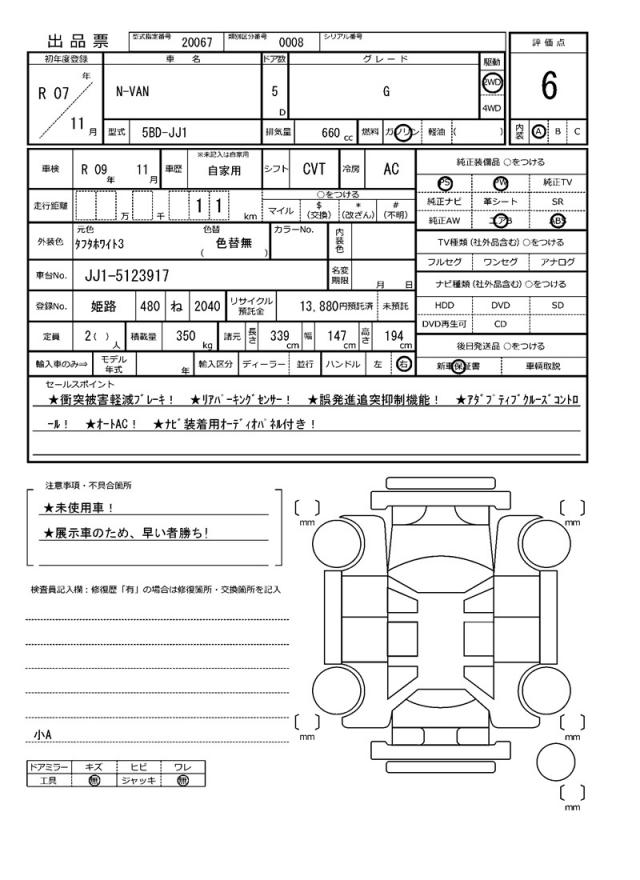 出品票 型式指定番号 20067 類別区分番号 0008 シリアル番号
評価点
初年度登録 車名 ドア数 グレード 駆動
R 07 年 11 月 N-VAN 5 D G 2WD 4WD 6
型式 5BD-JJ1 排気量 660 cc 燃料 ガソリン 軽油 ( ) 内装 A B C
車検 R 09 年 11 月 車歴 ※未記入は自家用 自家用 シフト CVT 冷房 AC
走行距離 万 千 1 1 km ○をつける
マイル $ (交換) * (改ざん) # (不明)
外装色 元色 タフタホワイト3 色替 ( 色替無 ) カラーNo. 内装色
車台No. JJ1-5123917 名変期限 月 日
登録No. 姫路 480 ね 2040 リサイクル預託金 13,880円預託済 未預託
定員 2( )人 積載量 350 kg 諸元 長さ 339 cm 幅 147 cm 高さ 194 cm
輸入車のみ⇒ モデル年式 年 輸入区分 ディーラー 並行 ハンドル 左 右
純正装備品 ○をつける
PS PW 純正TV
純正ナビ 革シート SR
純正AW エアB ABS
TV種類 (社外品含む) ○をつける
フルセグ ワンセグ アナログ
ナビ種類 (社外品含む) ○をつける
HDD DVD SD
DVD再生可 CD
後日発送品 ○をつける
新車保証書 車輌取説
セールスポイント
★衝突被害軽減ブレーキ! ★リアパーキングセンサー! ★誤発進追突抑制機能! ★アダプティブクルーズコントロ
ール! ★オートAC! ★ナビ装着用オーディオパネル付き!
注意事項・不具合箇所
★未使用車!
★展示車のため、早い者勝ち!
検査員記入欄:修復歴「有」の場合は修復箇所・交換箇所を記入
小A
ドアミラー キズ ヒビ ワレ
工具 無 ジャッキ 無
[ ] mm
[ ] mm
[ ] mm
[ ] mm
[ ] mm